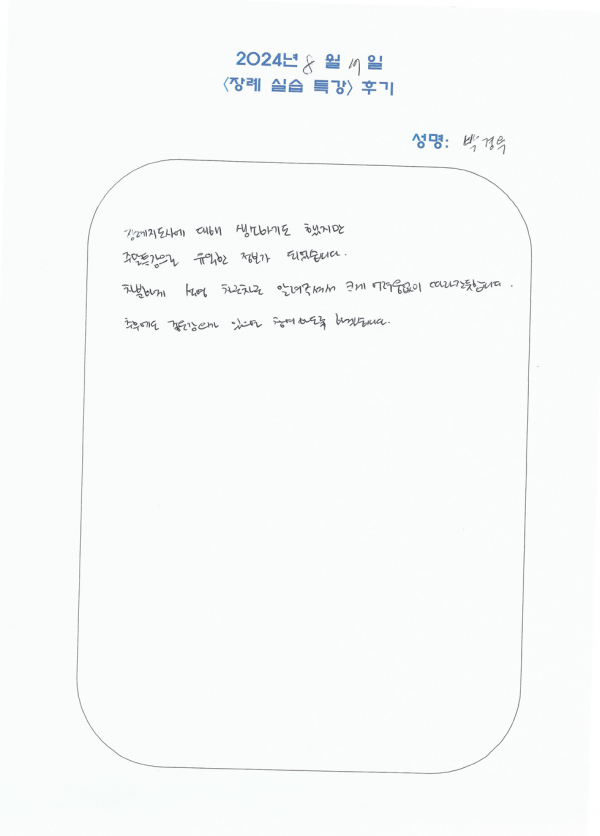 2024년 8 월 19 일
<장례 실습 특강> 후기
성명: 박경욱
장례지도사에 대해 생소하기도 했지만
주말특강으로 유익한 정보가 되었습니다.
차분하게 설명 차근차근 알려주셔서 크게 어려움없이 따라간듯합니다.
추후에도 특강 있으면 참여하도록 하겠습니다.